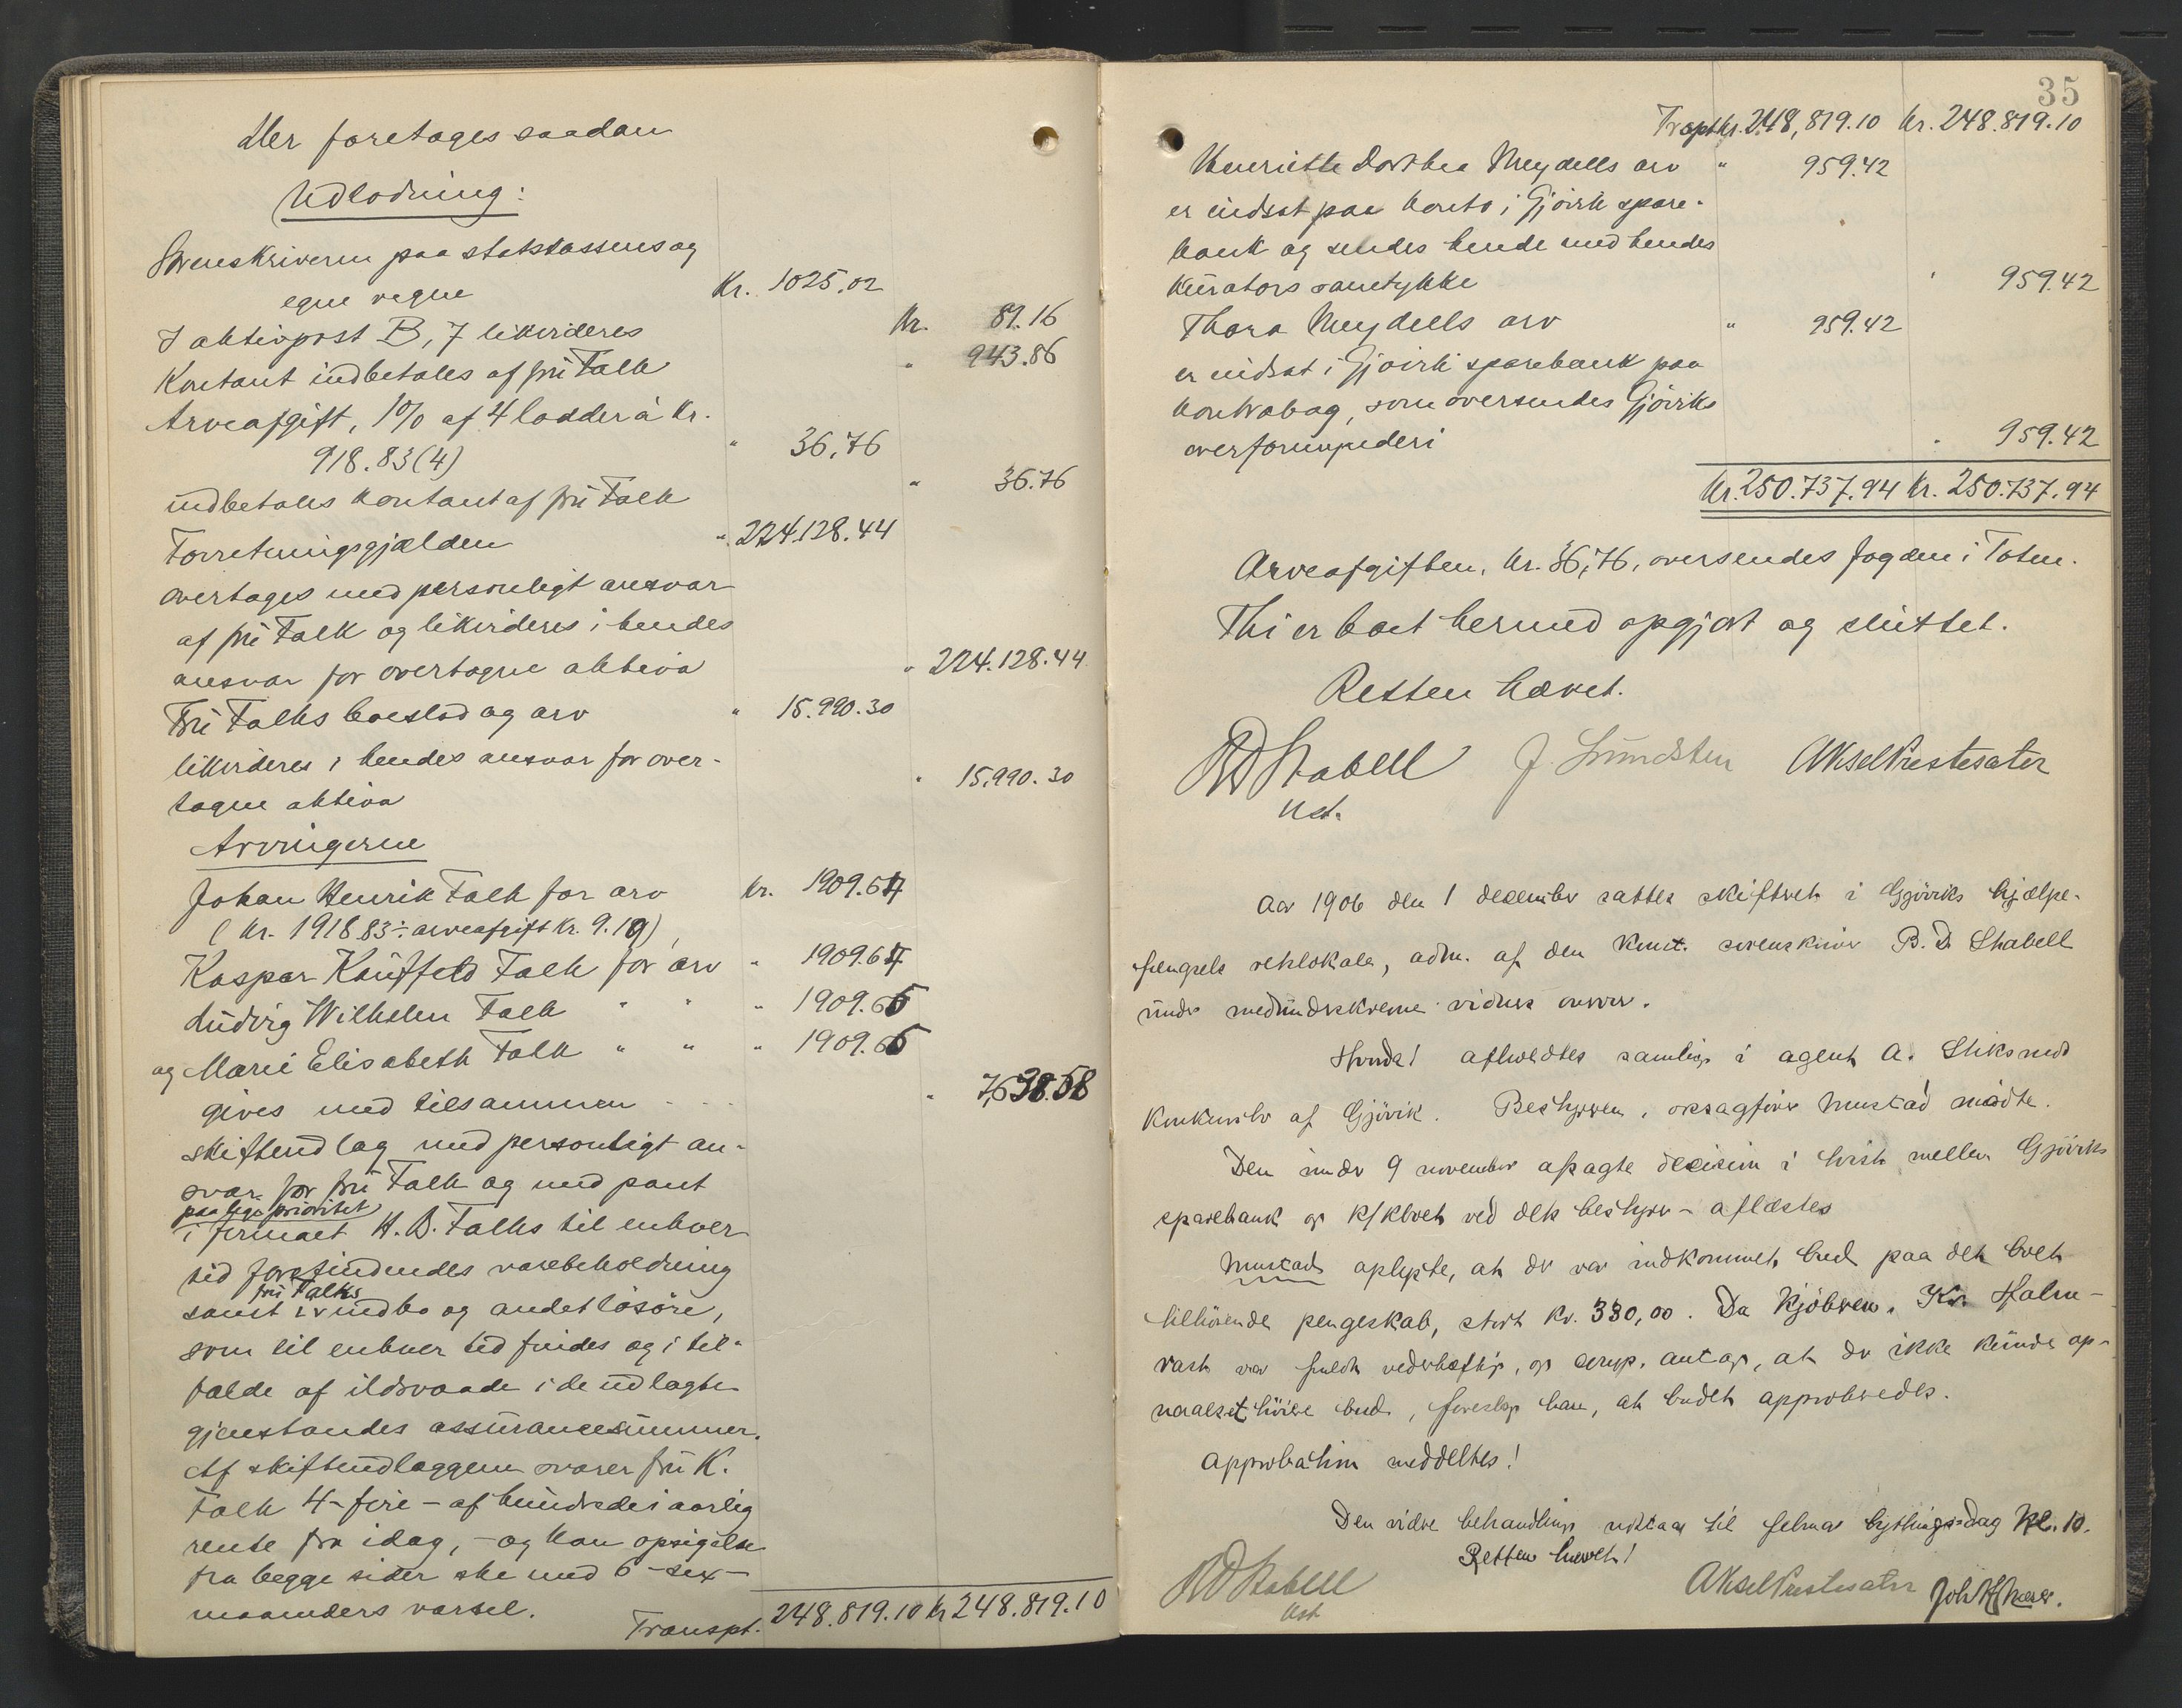 Her foretages saadan
Udlodning:
Sorenskriveren paa statskassens og
egne vegne Kr. 1025.02
I aktivpost B, 7 likvideres Kr. 81.16
Kontant indbetales af fru Falk " 943.86
Arveafgift, 1% af 4 lodder à Kr.
918.83 (4) " 36,76
indbetales kontant af fru Falk " 36.76
Forretningsgjælden " 224.128.44
overtages med personligt ansvar
af fru Falk og likvideres i hendes
ansvar for overtagne aktiva " 224.128.44
Fru Falks boeslod og arv " 15.990.30
likvideres i hendes ansvar for over-
tagne aktiva " 15,990.30
Arvingerne
Johan Henrik Falk for arv Kr. 1909.64
(Kr. 1918.83 ÷ arveafgift Kr. 9.19),
Kaspar Kauffeld Falk for arv " 1909.64
Ludvig Wilhelm Falk " " " 1909.65
og Marie Elisabeth Falk " " " 1909.65
gives med tilsammen - - - " 7,638.58
skifteudlæg med personligt an-
svar for fru Falk og med pant
paa lige prioritet
i firmaet H. B. Falks til enhver
tid forefindendes varebeholdning
fru Falks
samt indbo og andet løsøre,
som til enhver tid findes og i til-
fælde af ildsvaade i de udlagte
gjenstandes assurancesummer.
Af skifteudlæggene svarer fru K.
Falk 4 - fire - af hundrede i aarlig
rente fra idag, - og kan opsigelse
fra begge sider ske med 6 - sex -
maaneders varsel.
Transpt. 248.819.10 Kr 248.819.10
35
Transpt Kr. 248,819.10 Kr. 248.819.10
Henriette Dorthea Meydells arv " 959.42
er indsat paa konto i Gjøvik spare-
bank og sendes hende med hendes
kurators samtykke " 959.42
Thora Meydells arv " 959.42
er indsat i Gjøvik sparebank paa
kontrabog, som oversendes Gjøviks
overformynderi " 959.42
Kr. 250.737.94 Kr. 250.737.94
Arveafgiften, Kr. 36,76, oversendes fogden i Toten.
Thi er boet hermed opgjort og sluttet.
Retten hævet.
BD Stabell J. Lundsten Aksel Prestesæter
Kst.
Aar 1906 den 1 december sattes skifteret i Gjøviks hjælpe-
fængsels retslokale, adm. af den konst. sorenskriver B. D. Stabell
under medunderskrevne vidners overvær.
Hvorda! afholdtes samling i agent A.
konkursbo af Gjøvik. Bestyreren, o.r.sagfører Mustad mødte.
Den under 9 november afsagte decision i tvist mellem Gjøviks
sparebank og K/Kboet ved dets bestyrer - aflæstes
Mustad oplyste, at der var indkommet bud paa det boet
tilhørende pengeskab, stort kr. 330,00. Da kjøberen, Kr. Halm-
rast var fuldt vederhæftig, og comp. antog, at der ikke kunde op-
naaes et høiere bud, foreslog han, at budet approberedes.
Approbation meddeltes!
Den videre behandling udstaar til februar bythings-dag kl. 10.
Retten hævet!
BD Stabell Aksel Prestesæter
Kst